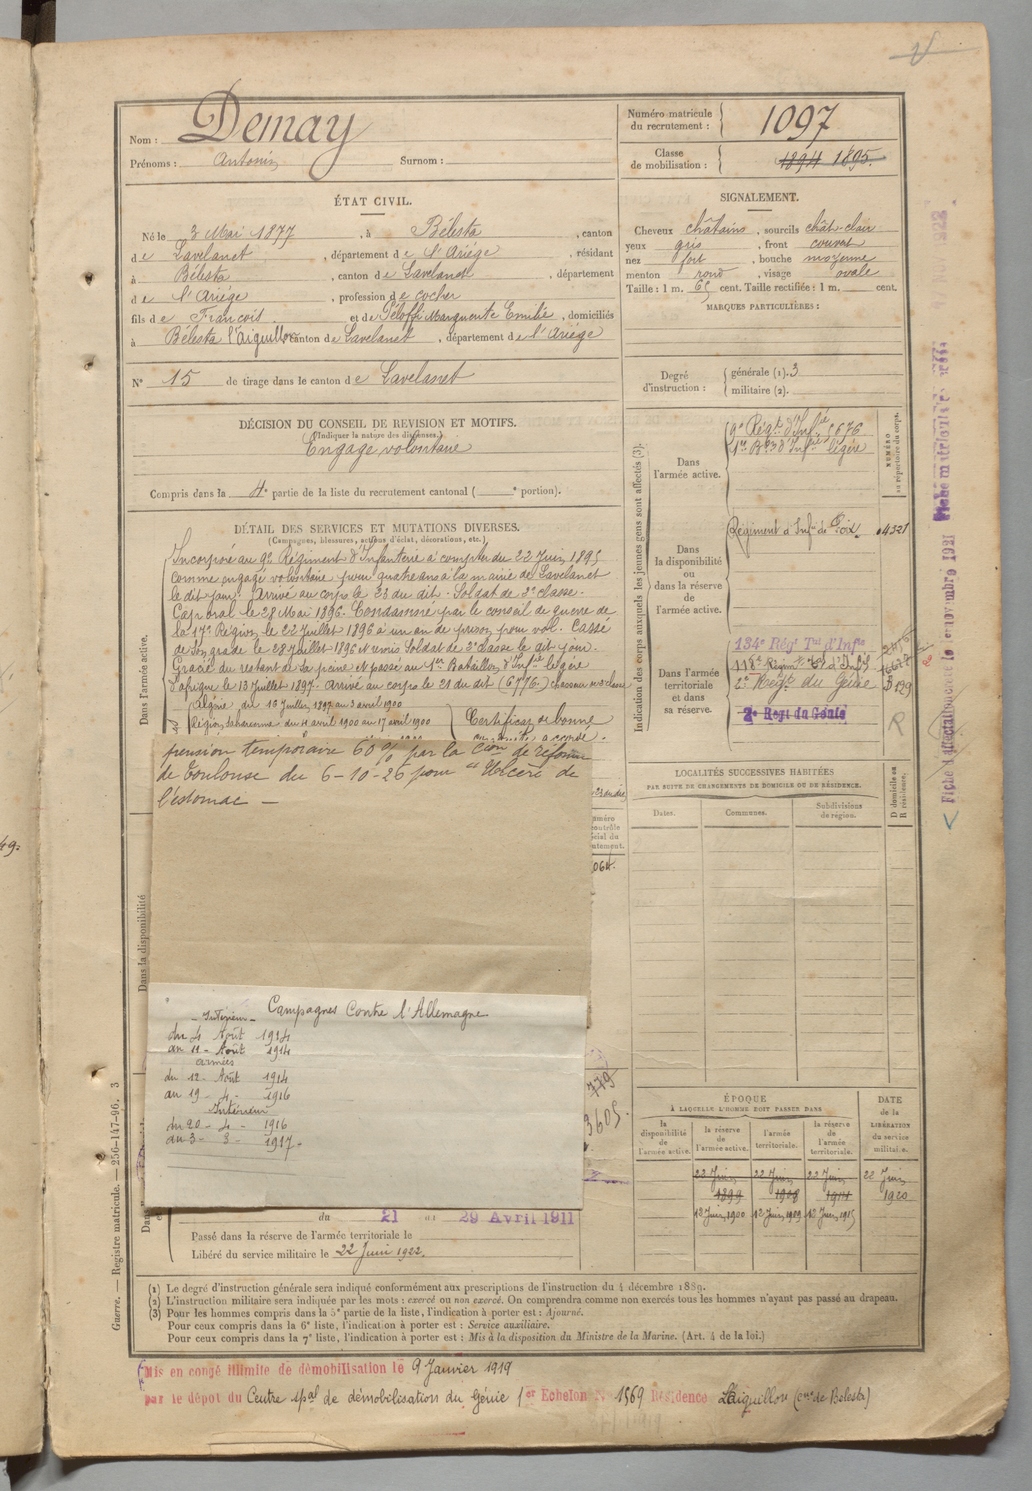 Nom : Demay
Prénoms : Antonin Surnom :
Numéro matricule du recrutement : 1097
Classe de mobilisation : 1894 1895.
ÉTAT CIVIL.
Né le 3 Mai 1877, à Bélesta, canton
de Lavelanet, département de l'Ariége, résidant
à Bélesta, canton de Lavelanet, département
de l'Ariége, profession de cocher
fils de François et de Marguerite Emilie, domiciliés
à Bélesta l'Aiguillon canton de Lavelanet, département de l'Ariége
N° 15 de tirage dans le canton de Lavelanet
SIGNALEMENT.
Cheveux châtains, sourcils chât-clair
yeux gris, front couvert
nez fort, bouche moyenne
menton rond, visage ovale
Taille : 1 m. 65 cent. Taille rectifiée : 1 m. cent.
MARQUES PARTICULIÈRES :
Degré d'instruction : générale (1). 3
militaire (2).
DÉCISION DU CONSEIL DE REVISION ET MOTIFS.
(Indiquer la nature des dispenses.)
Engagé volontaire
Compris dans la 4e partie de la liste du recrutement cantonal ( e portion).
DÉTAIL DES SERVICES ET MUTATIONS DIVERSES.
(Campagnes, blessures, actions d'éclat, décorations, etc.)
Dans l'armée active.
Incorporé au 9e Régiment d'Infanterie à compter du 22 Juin 1895
comme engagé volontaire pour quatre ans à la mairie de Lavelanet
le dit jour. Arrivé au corps le 23 du dit. Soldat de 2e classe.
Caporal le 28 Mai 1896. Condamné par le conseil de guerre de
la 17e Région le 22 Juillet 1896 à un an de prison pour vol. Cassé
de son grade le 28 Juillet 1896 et remis Soldat de 2e classe le dit jour.
Gracié du restant de sa peine et passé au 1er Bataillon d'Infie légère
d'afrique le 13 Juillet 1897. Arrivé au corps le 21 du dit (6776) chasseur de 2e classe
Algérie du 16 Juillet 1897 au 3 avril 1900
Région saharienne du 4 avril 1900 au 17 avril 1900
Certificat de bonne
Indication des corps auxquels les jeunes gens sont affectés (3).
NUMÉRO au répertoire du corps.
Dans l'armée active.
9e Régt d'Infie 5676
1er Bon d'Infie légère
Dans la disponibilité ou dans la réserve de l'armée active.
Régiment d'Infie de Foix 04321
Dans l'armée territoriale et dans sa réserve.
134e Régt Tal d'Infie
118e Régimt Tal d'Infie
2e Régt du Génie
2e Regt du Génie
R
pension temporaire 60% par la Con de réforme
de Toulouse du 6-10-26 pour "Ulcère de
l'estomac —
Dans la disponibilité
Campagnes Contre l'Allemagne
— Intérieur —
du 4 Août 1914
au 11 - Août 1914
armées
du 12 - Août 1914
au 19 - 4 - 1916
Intérieur
du 20 - 4 - 1916
au 3 - 3 - 1917 -
779
3605.
du 21 au 29 Avril 1911
Passé dans la réserve de l'armée territoriale le
Libéré du service militaire le 22 Juin 1922.
LOCALITÉS SUCCESSIVES HABITÉES
PAR SUITE DE CHANGEMENTS DE DOMICILE OU DE RÉSIDENCE.
Dates. Communes. Subdivisions de région. D domicile ou R résidence.
ÉPOQUE
À LAQUELLE L'HOMME DOIT PASSER DANS
la disponibilité de l'armée active. la réserve de l'armée active. l'armée territoriale. la réserve de l'armée territoriale.
DATE de la LIBÉRATION du service militaire.
22 Juin 1899 22 Juin 1908 22 Juin 1914 22 Juin 1920
12 Juin 1900 12 Juin 1909 12 Juin 1915
(1) Le degré d'instruction générale sera indiqué conformément aux prescriptions de l'instruction du 4 décembre 1889.
(2) L'instruction militaire sera indiquée par les mots : exercé ou non exercé. On comprendra comme non exercés tous les hommes n'ayant pas passé au drapeau.
(3) Pour les hommes compris dans la 5e partie de la liste, l'indication à porter est : Ajourné.
Pour ceux compris dans la 6e liste, l'indication à porter est : Service auxiliaire.
Pour ceux compris dans la 7e liste, l'indication à porter est : Mis à la disposition du Ministre de la Marine. (Art. 4 de la loi.)
Mis en congé illimité de démobilisation le 9 Janvier 1919
par le dépôt du Centre spal de démobilisation du Génie 1er Echelon N° 1569 Résidence L'aiguillon (cne de Bélesta)
Guerre. — Registre matricule. — 256-147-96. 3
Fiche d'affectation créée le 1er novembre 1921